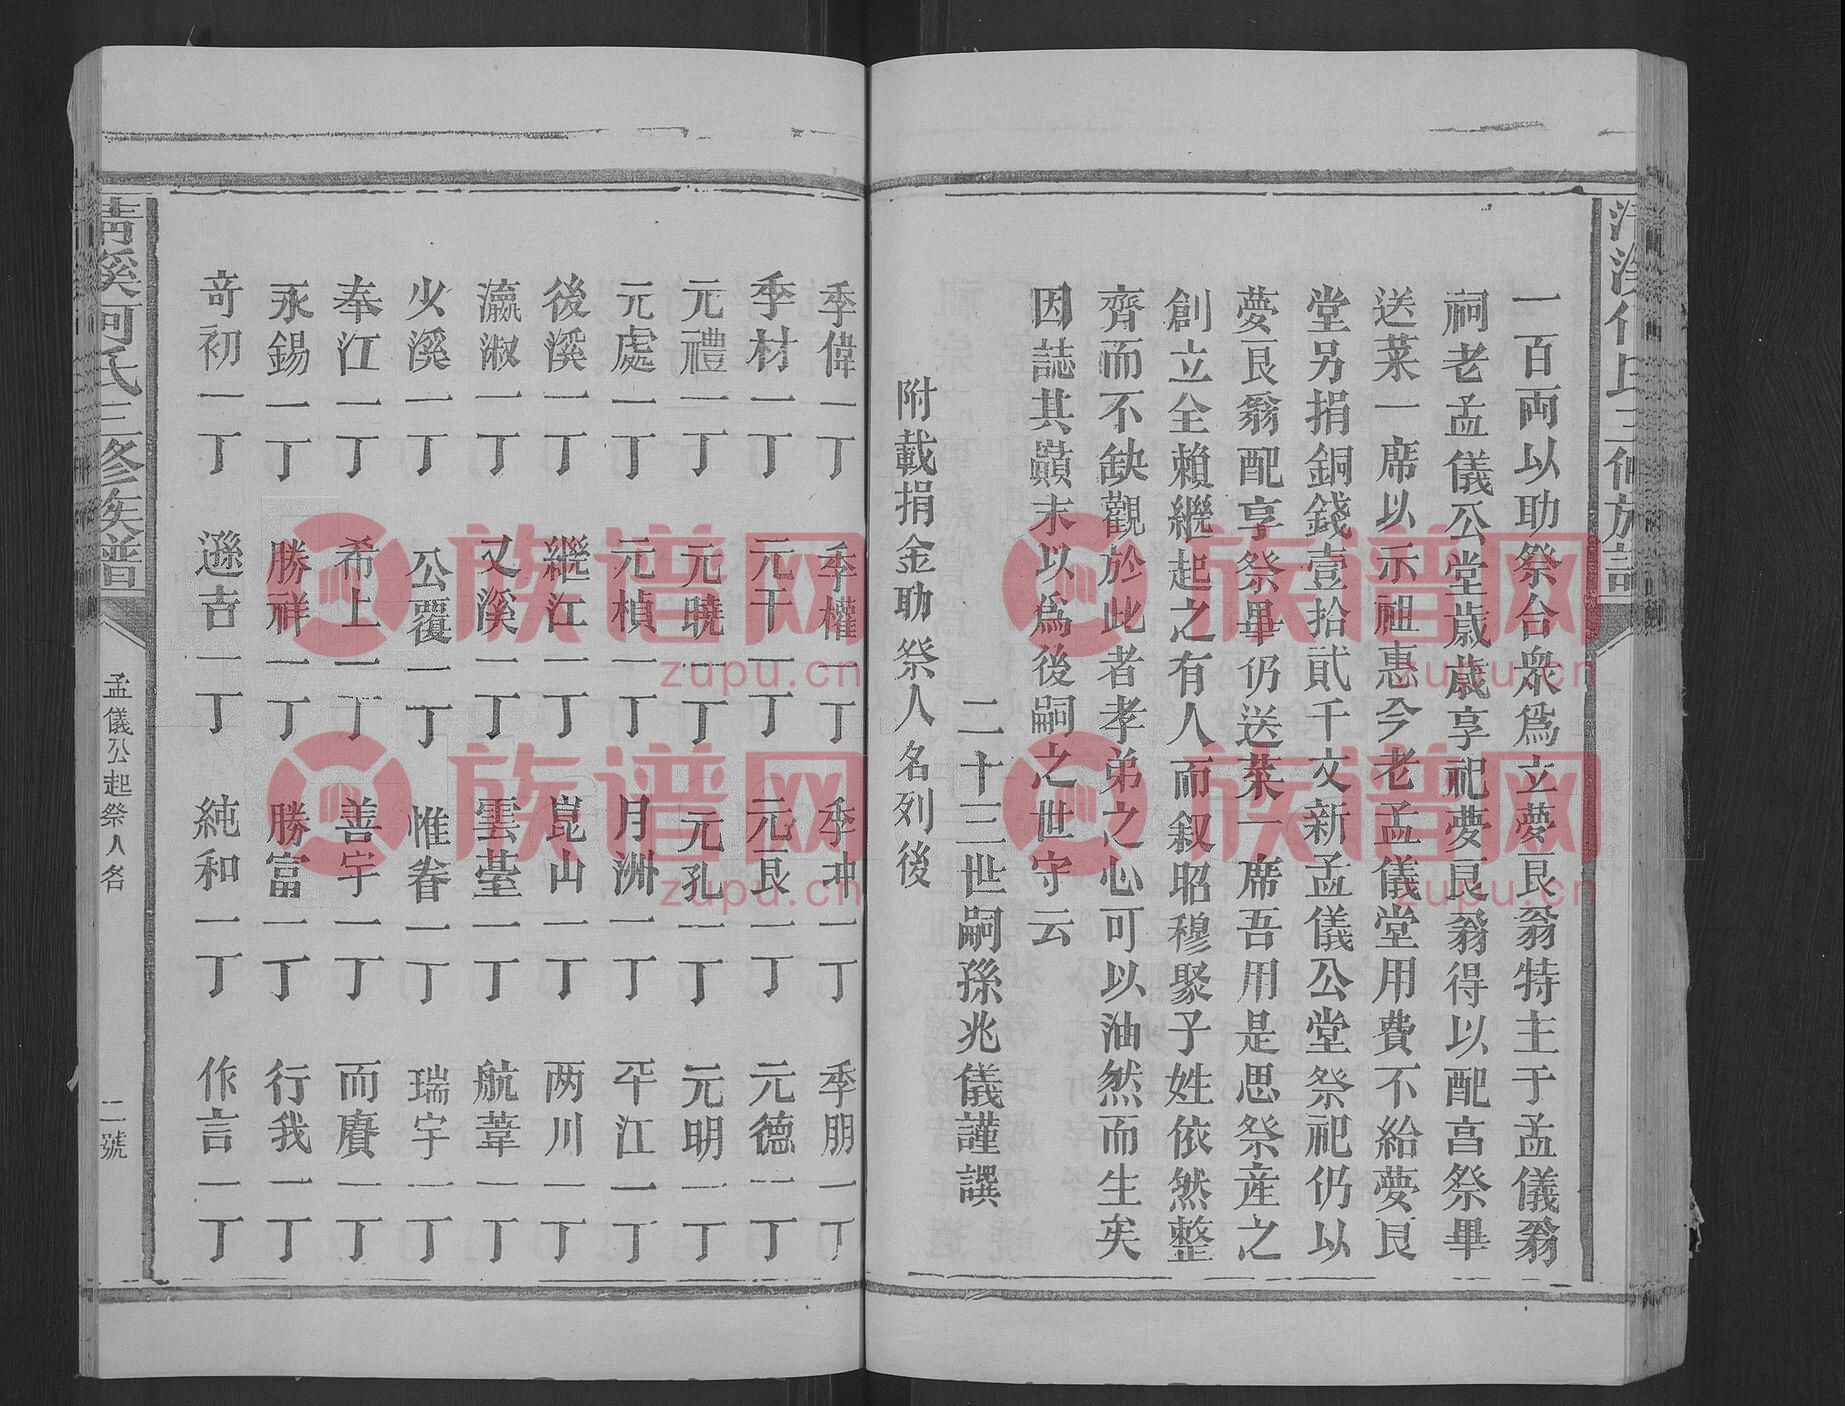 一百両以助祭台眾為立夢良翁特主于孟儀翁
祠老孟儀公堂歲歲享祀夢良翁得以配亯祭畢
送菜一席以示祖惠今老孟儀堂用費不給夢良
堂另捐銅錢壹拾貳千文新孟儀公堂祭祀仍以
夢良翁配享祭畢仍送菜一席吾用是思祭産之
創立全賴繼起之有人而叙昭穆聚子姓依然整
齊而不缺觀於此者孝弟之心可以油然而生矣
因誌其顛末以爲後嗣之世守云
二十三世嗣孫兆儀謹譔
附載捐金助祭人名列後
季偉一丁 季權一丁 季冲一丁 季朋一丁
季材一丁 元干一丁 元良一丁 元德一丁
元禮一丁 元曉一丁 元孔一丁 元明一丁
元處一丁 元楨一丁 月洲一丁 平江一丁
後溪一丁 繼江一丁 崑山一丁 两川一丁
瀛淑一丁 又溪一丁 雲臺一丁 航葦一丁
少溪一丁 公覆一丁 惟眷一丁 瑞宇一丁
奉江一丁 希上一丁 善宇一丁 而賡一丁
永錫一丁 勝祥一丁 勝富一丁 行我一丁
竒初一丁 遜吉一丁 純和一丁 作言一丁
清溪何氏三修族譜
孟儀公起祭人名
二號
族谱网
zupu.cn
族谱网
zupu.cn
族谱网
zupu.cn
族谱网
zupu.cn